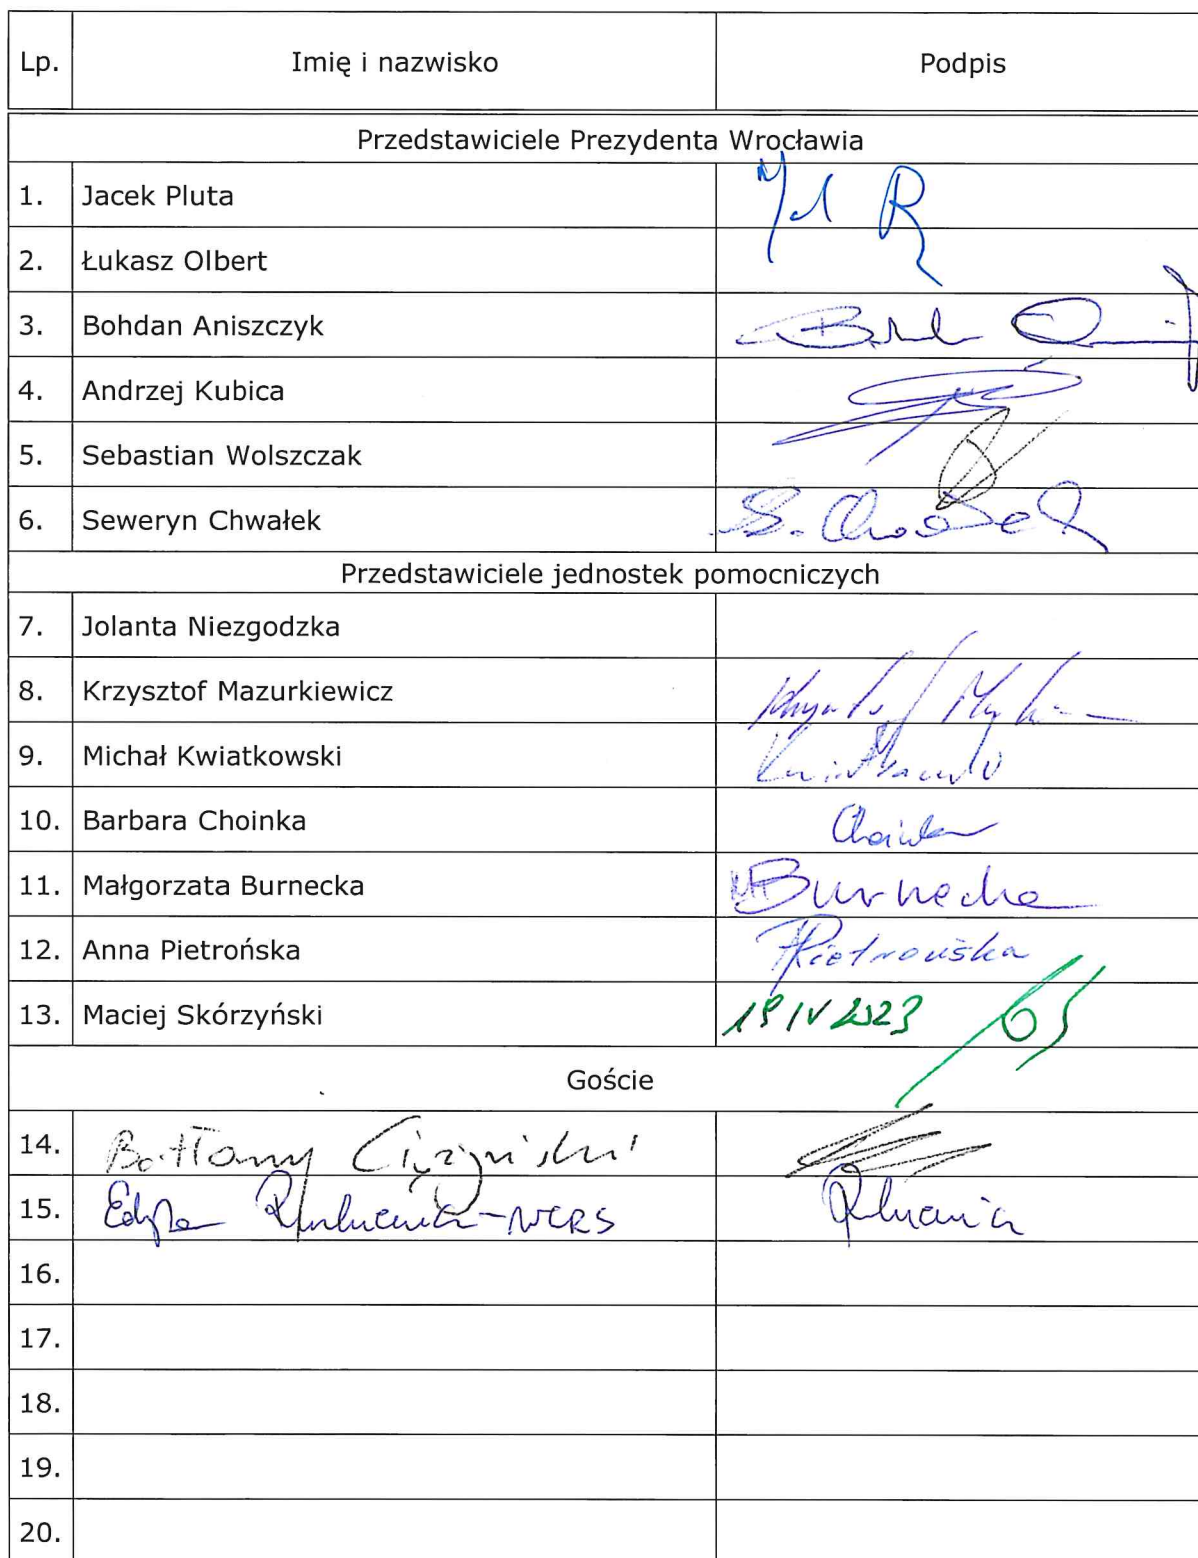 Lp. Imię i nazwisko Podpis
Przedstawiciele Prezydenta Wrocławia
1. Jacek Pluta
2. Łukasz Olbert
3. Bohdan Aniszczyk
4. Andrzej Kubica
5. Sebastian Wolszczak
6. Seweryn Chwałek S. Chwałek
Przedstawiciele jednostek pomocniczych
7. Jolanta Niezgodzka
8. Krzysztof Mazurkiewicz
9. Michał Kwiatkowski Kwiatkowski
10. Barbara Choinka Choinka
11. Małgorzata Burnecka MBurnecka
12. Anna Pietrońska APietrońska
13. Maciej Skórzyński 19 IV 2023
Goście
14. Bartłomiej Ciążyński
15. Edyta
16.
17.
18.
19.
20.